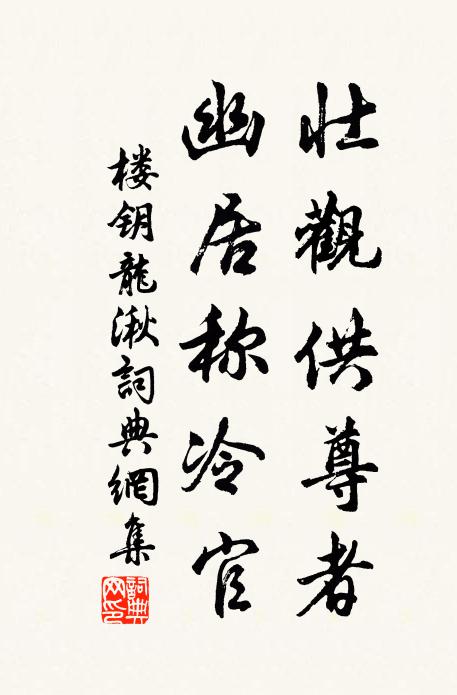 壮觀供尊者
幽居称冷官
楼钥龍湫詞典網集
詞典网印